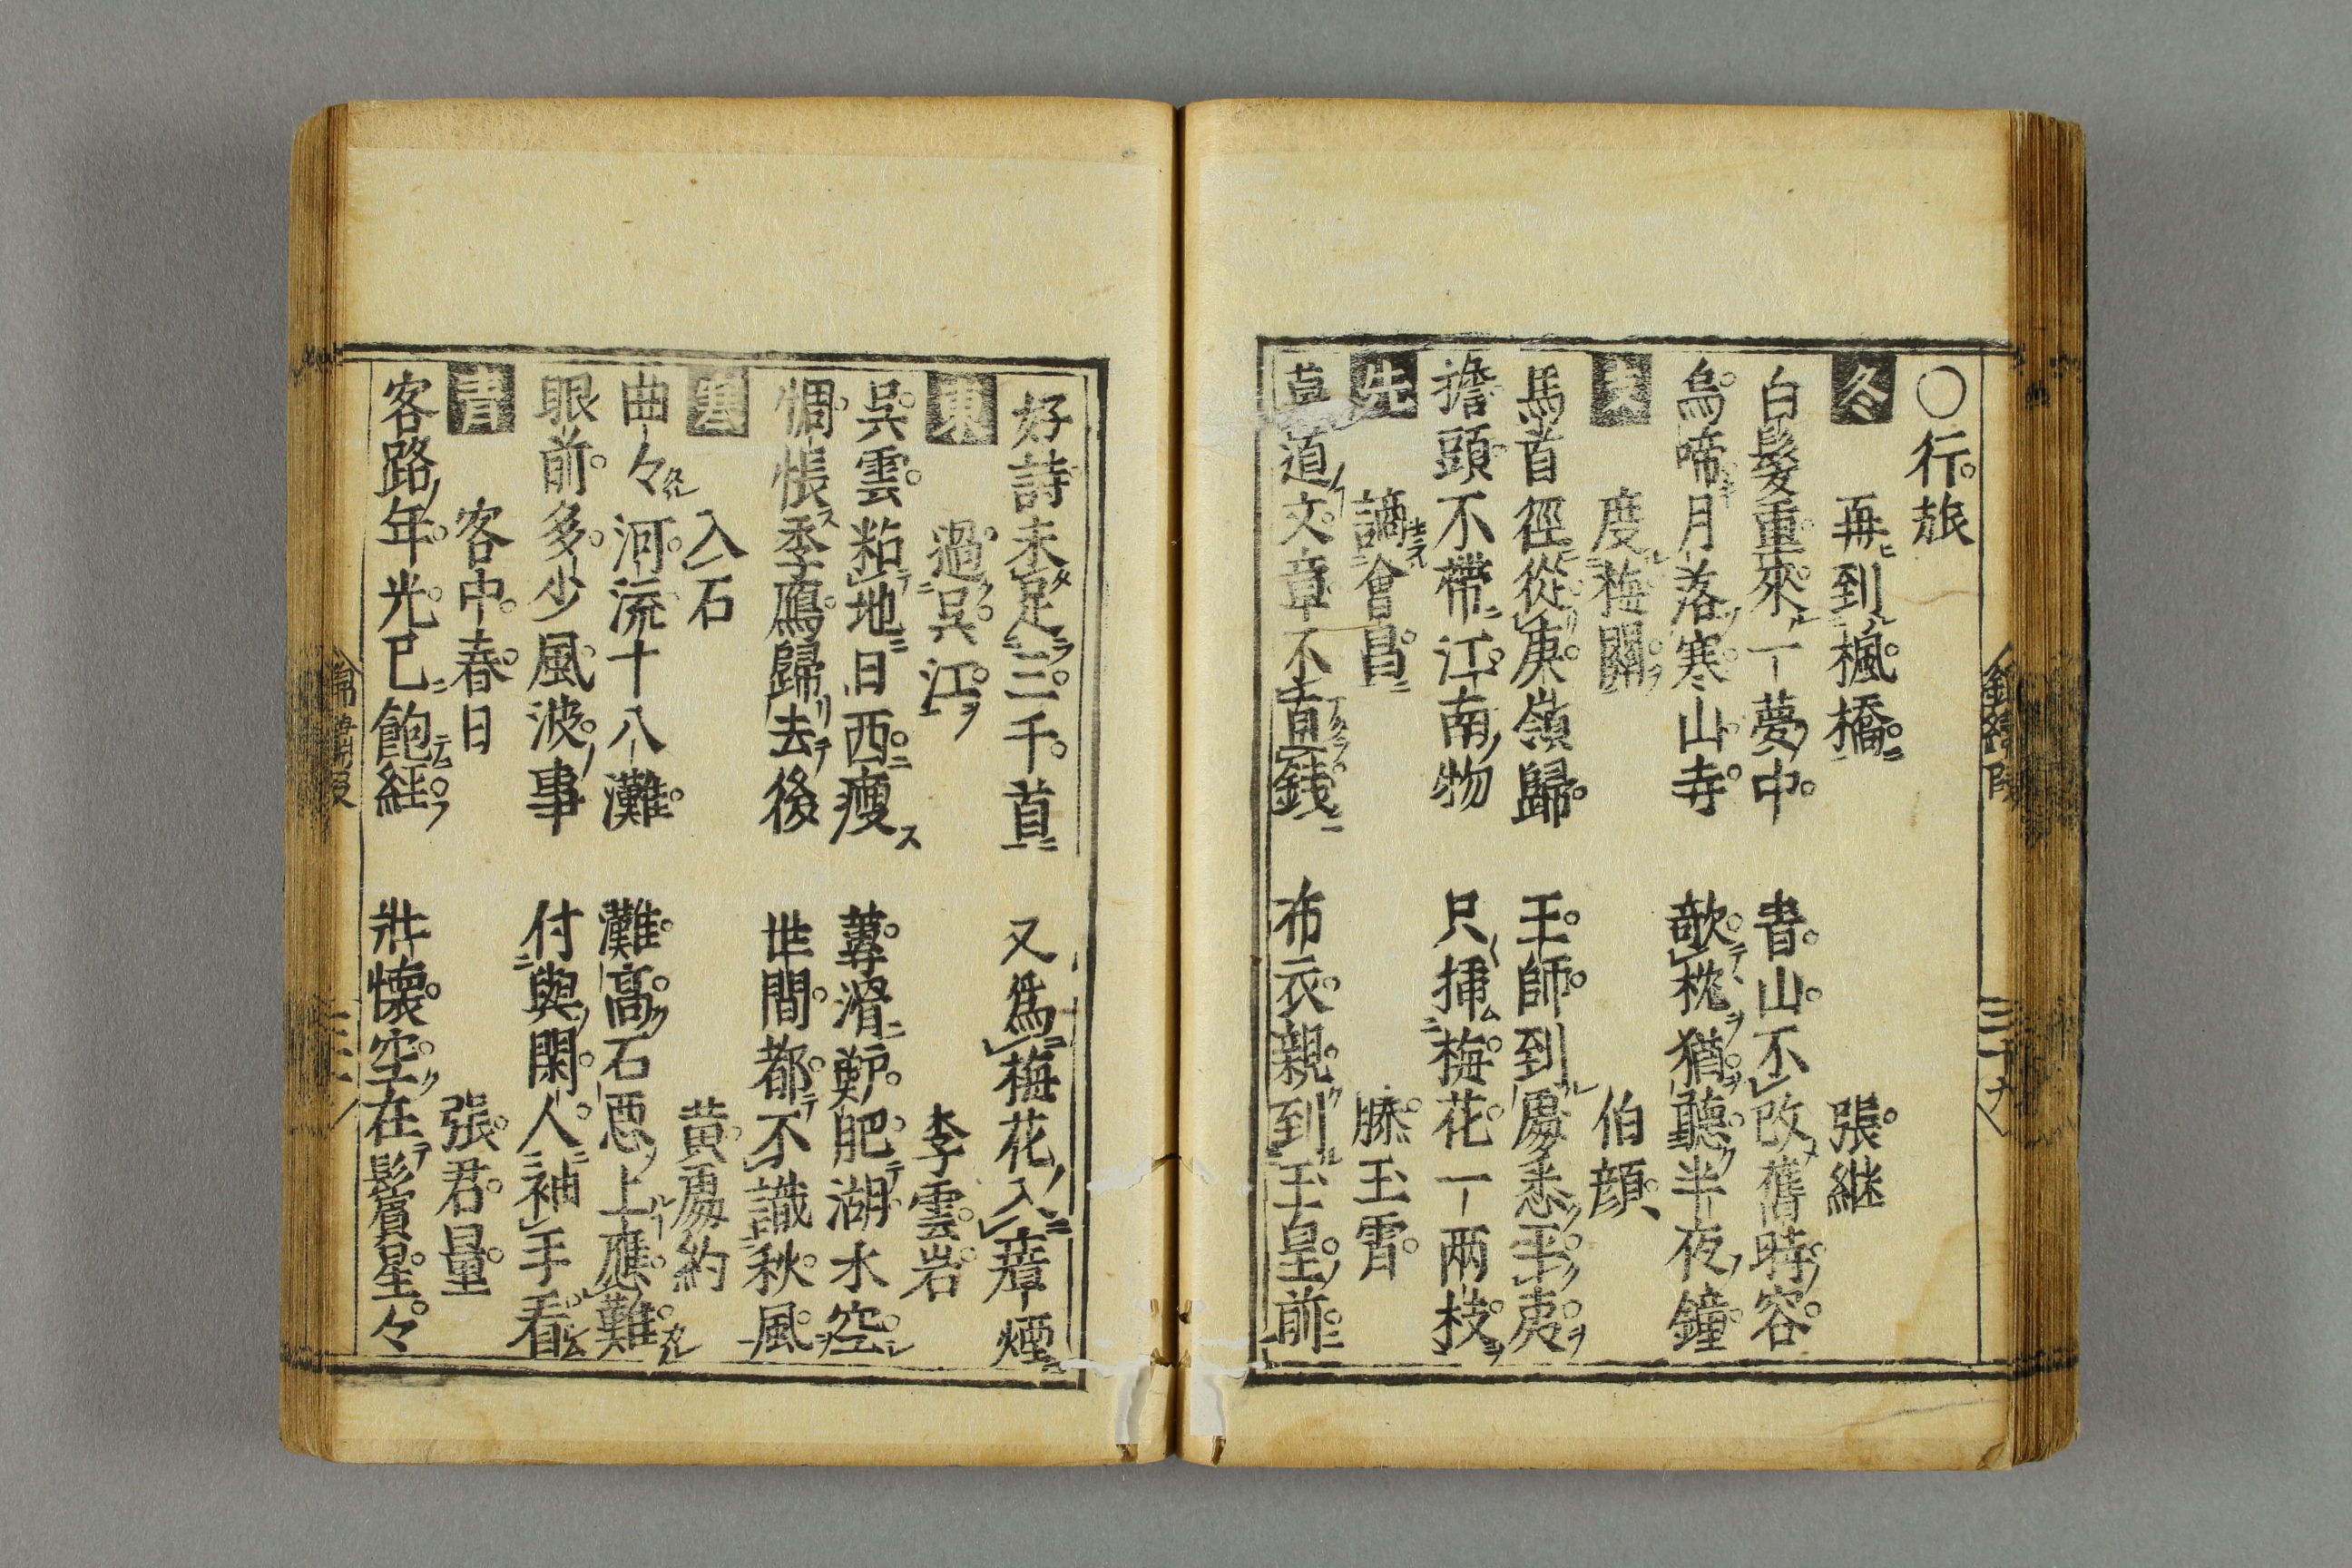 ○行旅
冬 再到楓橋 張継
白髮重來一夢中 青山不改舊時容
烏啼月落寒山寺 欹枕猶聽半夜鐘
度梅關 伯顔
馬首徑從庾嶺歸 王師到處悉平夷
擔頭不帶江南物 只挿梅花一兩枝
先 謫會昌 滕玉霄
莫道文章不直錢 布衣親到玉皇前
好詩未足三千首 又爲梅花入瘴煙
東 過吳江 李雲岩
吳雲粘地日西瘦 蓴滑鄭肥湖水空
惆悵季鷹歸去後 世間都不識秋風
寒 入石 黄處約
曲々河流十八灘 灘高石惡上應難
眼前多少風波事 付與閑人袖手看
青 客中春日 張君量
客路年光已飽經 壯懷空在鬂星々